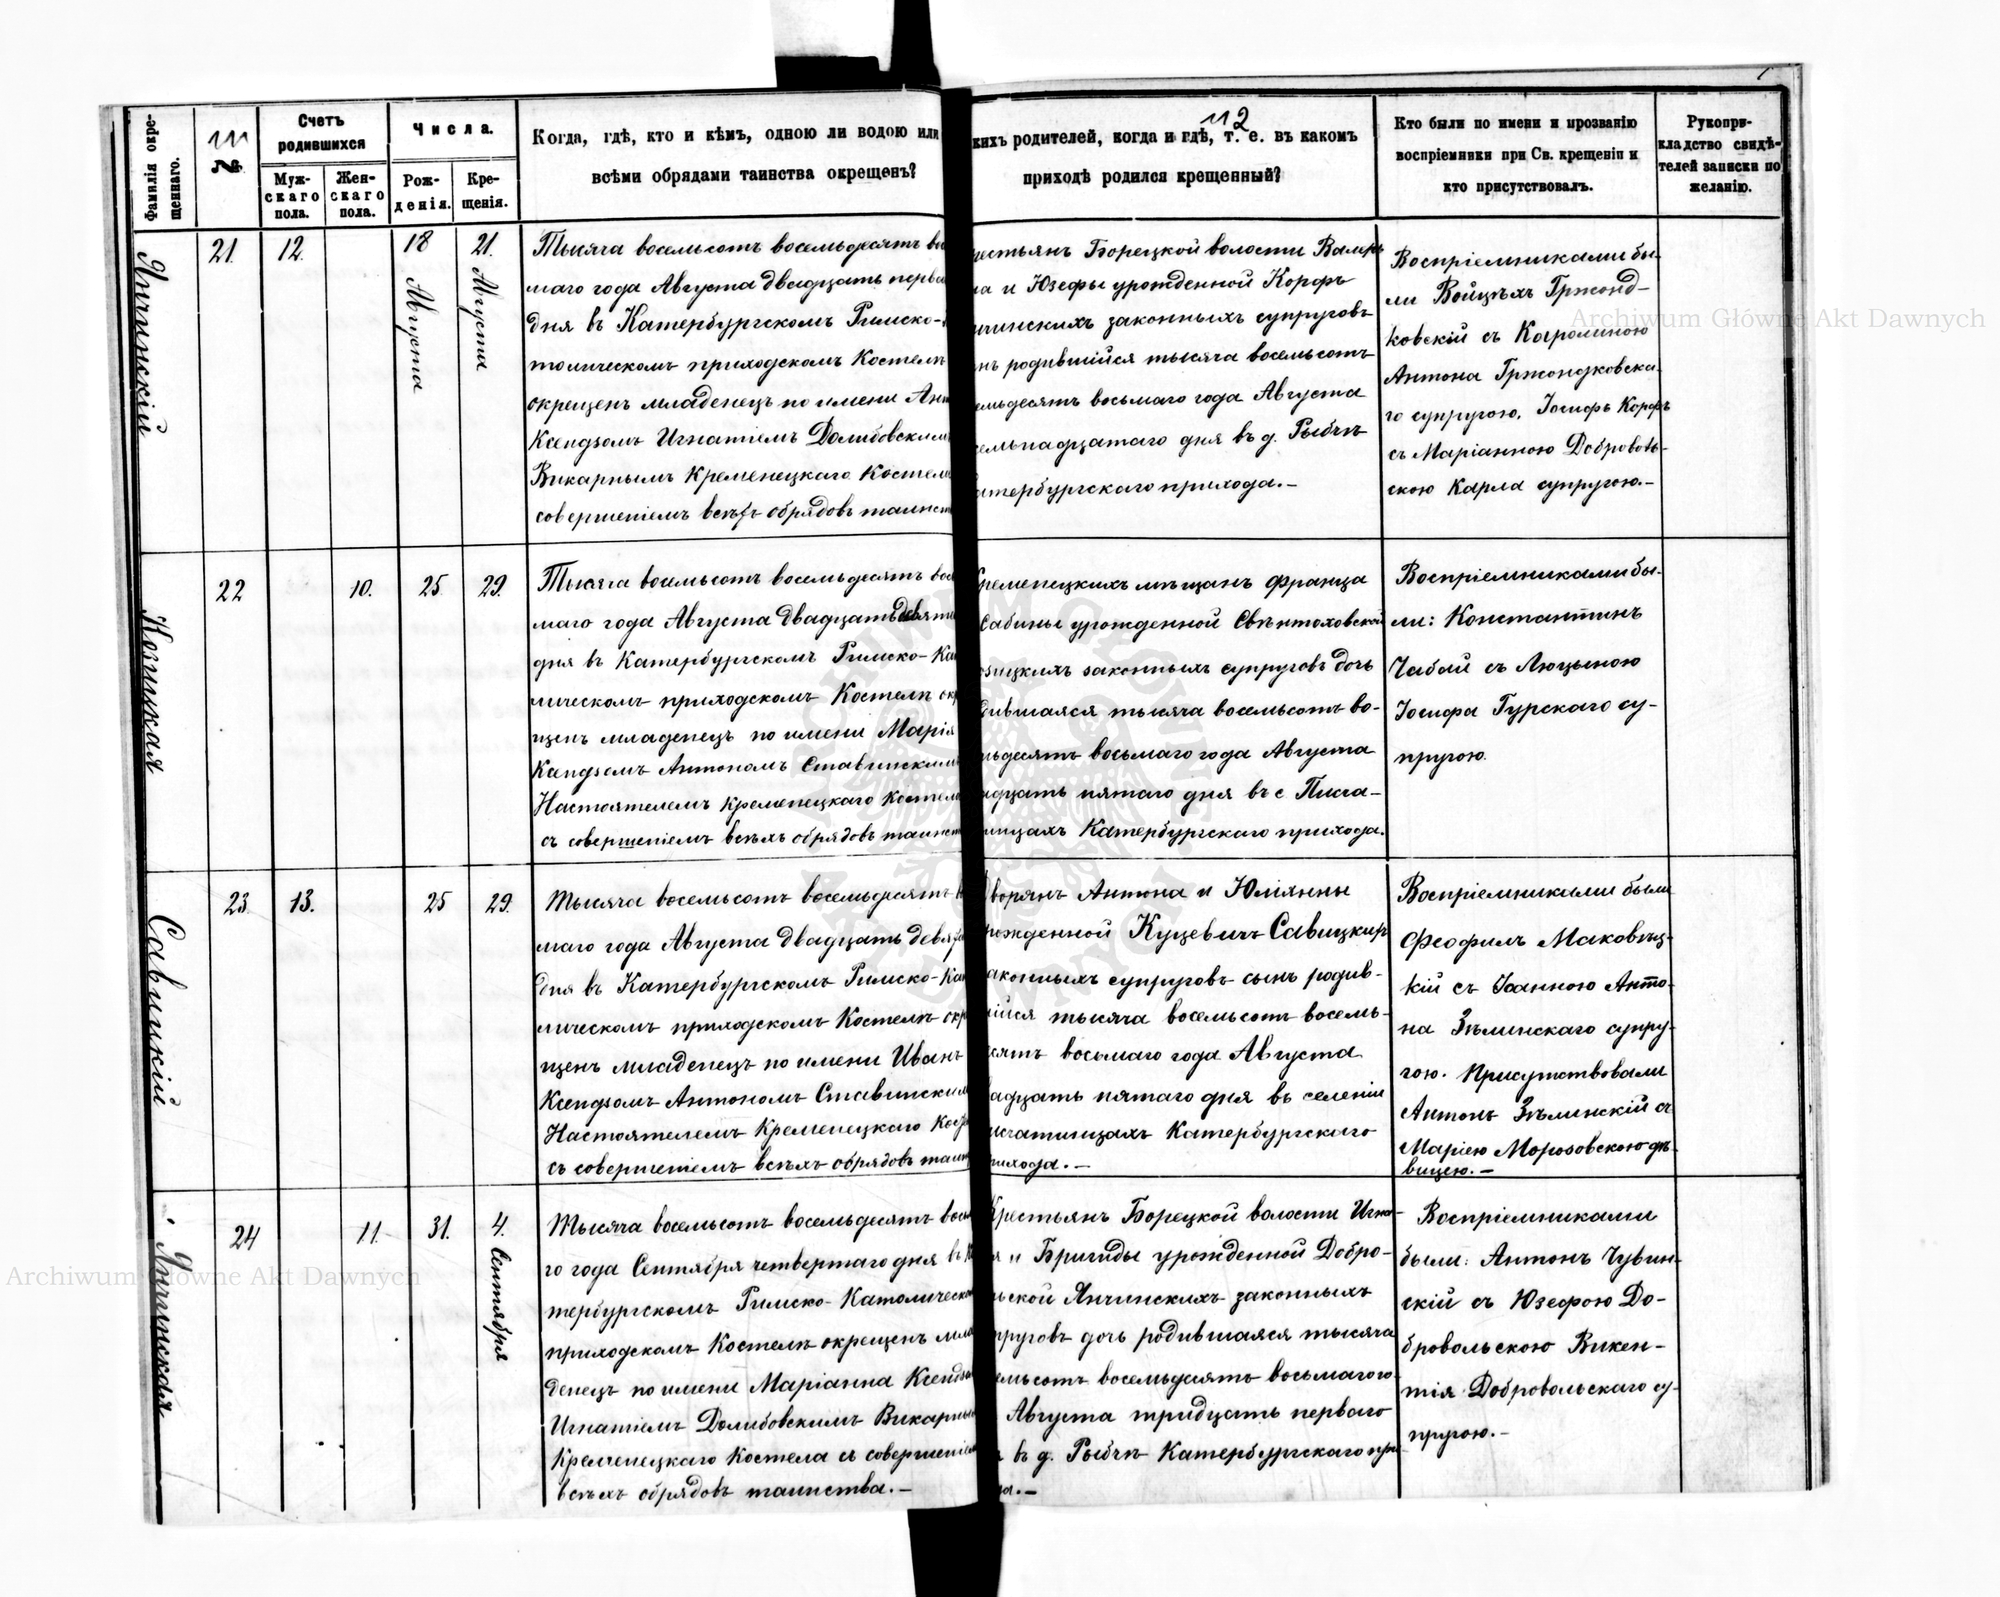 112
Фамилія окрещеннаго.
№
Счетъ родившихся
Мужскаго пола.
Женскаго пола.
Числа.
Рожденія.
Крещенія.
Когда, гдѣ, кто и кѣмъ, одною ли водою или
всѣми обрядами таинства окрещенъ?
кихъ родителей, когда и гдѣ, т. е. въ какомъ
приходѣ родился крещенный?
Кто были по имени и прозванію
воспріемники при Св. крещеніи и
кто присутствовалъ.
Рукопри-
кладство свидѣ-
телей записки по
желанію.
Янчинскій
21.
12.
18 Августа
21. Августа
Тысяча восемьсотъ восемьдесятъ во
маго года Августа двадцать перва
дня въ Катербургскомъ Римско-
толическомъ приходскомъ Костелѣ
окрещенъ младенецъ по имени Ант
Ксендзомъ Игнатіемъ Долибовским
Викарнымъ Кременецкаго Костела
совершеніемъ всѣхъ обрядовъ таинст
естьянъ Борецкой волости Валерь
на и Юзефы урожденной Корфъ
нчинскихъ законныхъ супруговъ
нъ родившійся тысяча восемьсотъ
емьдесятъ восьмаго года Августа
семьнадцатаго дня въ д. Рыбчѣ
атербургскаго прихода.–
Воспріемниками бы-
ли Войцѣхъ Гржонд-
ковскій съ Каролиною
Антона Гржондковска-
го супругою, Іосифъ Корфъ
съ Маріанною Доброволь-
скою Карла супругою.–
Козицкая
22
10.
25
29.
Тысяча восемьсотъ восемьдесятъ вос
маго года Августа двадцать девята
дня въ Катербургскомъ Римско-Ка
лическомъ приходскомъ Костелѣ окр
щенъ младенецъ по имени Марія
Ксендзомъ Антономъ Ставинским
Настоятелемъ Кременецкаго Костела
съ совершеніемъ всѣхъ обрядовъ таинст
Кременецкихъ мѣщанъ Франца
Сабины урожденной Свѣнтоховской
озицкихъ законныхъ супруговъ дочь
дившаяся тысяча восемьсотъ во-
мьдесятъ восьмаго года Августа
адцать пятаго дня въ с Писча-
тинцахъ Катербургскаго прихода.
Воспріемниками бы-
ли: Константинъ
Чабай съ Люцыною
Іосифа Гурскаго су-
пругою.
Савицкій
23.
13.
25
29.
Тысяча восемьсотъ восемьдесятъ в
маго года Августа двадцать девята
дня въ Катербургскомъ Римско-Ка
лическомъ приходскомъ Костелѣ окр
щенъ младенецъ по имени Иванъ
Ксендзомъ Антономъ Ставинским
Настоятелемъ Кременецкаго Кост
съ совершеніемъ всѣхъ обрядовъ таин
ворянъ Антона и Юліянны
рожденной Куцевичъ Савицкихъ
аконныхъ супруговъ сынъ родив-
шійся тысяча восемьсотъ восемь-
сятъ восьмаго года Августа
вадцать пятаго дня въ селеніи
исчатинцахъ Катербургскаго
рихода.–
Воспріемниками были
Феофилъ Маковѣц-
кій съ Іоанною Анто-
на Зѣлинскаго супру-
гою. Присутствовали
Антонъ Зѣлинскій съ
Маріею Морозовскою дѣ-
вицею.–
Янчинская
24
11.
31.
4. Сентября
Тысяча восемьсотъ восемьдесятъ вось
го года Сентября четвертаго дня въ К
тербургскомъ Римско-Католическо
приходскомъ Костелѣ окрещенъ мла
денецъ по имени Маріанна Ксендзо
Игнатіемъ Долибовскимъ Викарны
Кременецкаго Костела съ совершеніе
всѣхъ обрядовъ таинства.–
Крестьянъ Борецкой волости Игна-
я и Бригиды урожденной Добро-
льской Янчинскихъ законныхъ
пруговъ дочь родившаяся тысяча
емьсотъ восемьдесятъ восьмаго го-
Августа тридцать перваго
въ д. Рыбчѣ Катербургскаго при
да.–
Воспріемниками
были: Антонъ Чувин-
скій съ Юзефою До-
бровольскою Викен-
тія Добровольскаго су-
пругою.–
Archiwum Główne Akt Dawnych
Archiwum Główne Akt Dawnych
ARCHIWUM GŁÓWNE AKT DAWNYCH